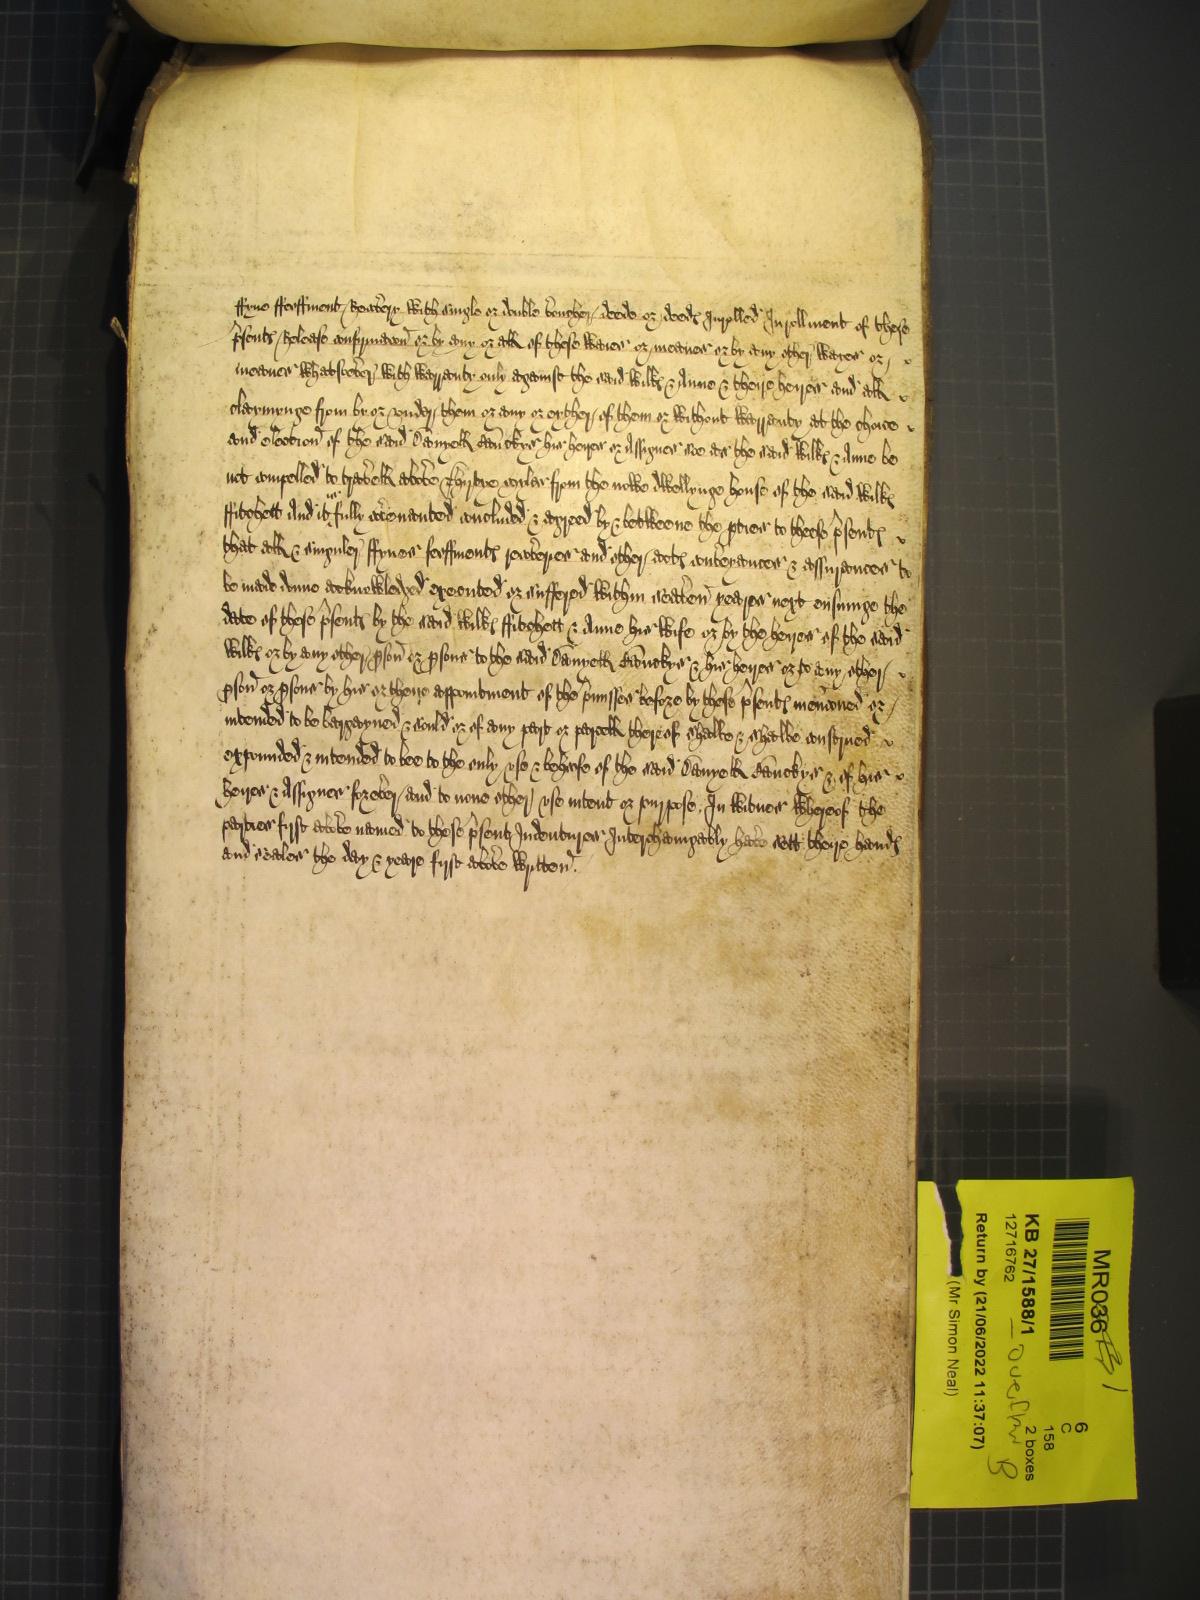 ffyne ffeoffment Recovery with single or double voucher deede or deeds Inrolled Inrollment of these
p̄sents Release confirmacon or by any or all of these waies or meanes or by any other waies or
meanes whatsoever with warranty only against the said Willm & Anne & theire heires and all
clayminge from by or under them or any or eyther of them or without warranty at the choice
and eleccon of the said Danyell his heires or Assignes soe as the said Willm & Anne be
not compelled to travell above myles from the nowe dwellynge house of the said Willm
ffitchett And it is fully covenanted concluded & agreed by & betweene the pties to theese p̄sents
that all & singuler ffynes feoffments recoveries and other acts conveyances & assurances to
be made donne acknowledged executed or suffered within seaven yeares next ensuinge the
date of these p̄sents by the said Willm ffitchett & Anne his wife or by the heires of the said
Willm or by any other pson or psons to the said Danyell & his heires or to any other
pson or psons by his or theire appointment of the p̄misses before by these p̄sents menconed or
intended to be bargayned & sould or of any part or parcell thereof shalbe & shalbe construed
expounded & intended to bee to the only use & behofe of the said Danyell & of his
heires & Assignes forever and to none other use intent or purpose. In witnes whereof the
parties first above named to these p̄sent Indentures Interchangably have sett theire hands
and seales the day & yeare first above written.
MR036
1
6
C
158
2 boxes
KB 27/1588/1 — overflow B
12716762
Return by (21/06/2022 11:37:07)
(Mr Simon Neal)